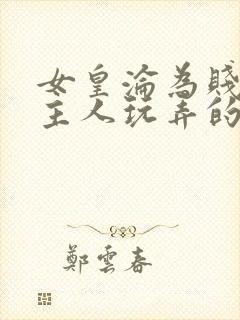 女皇淪為賤
主人玩弄的
鄭雲春